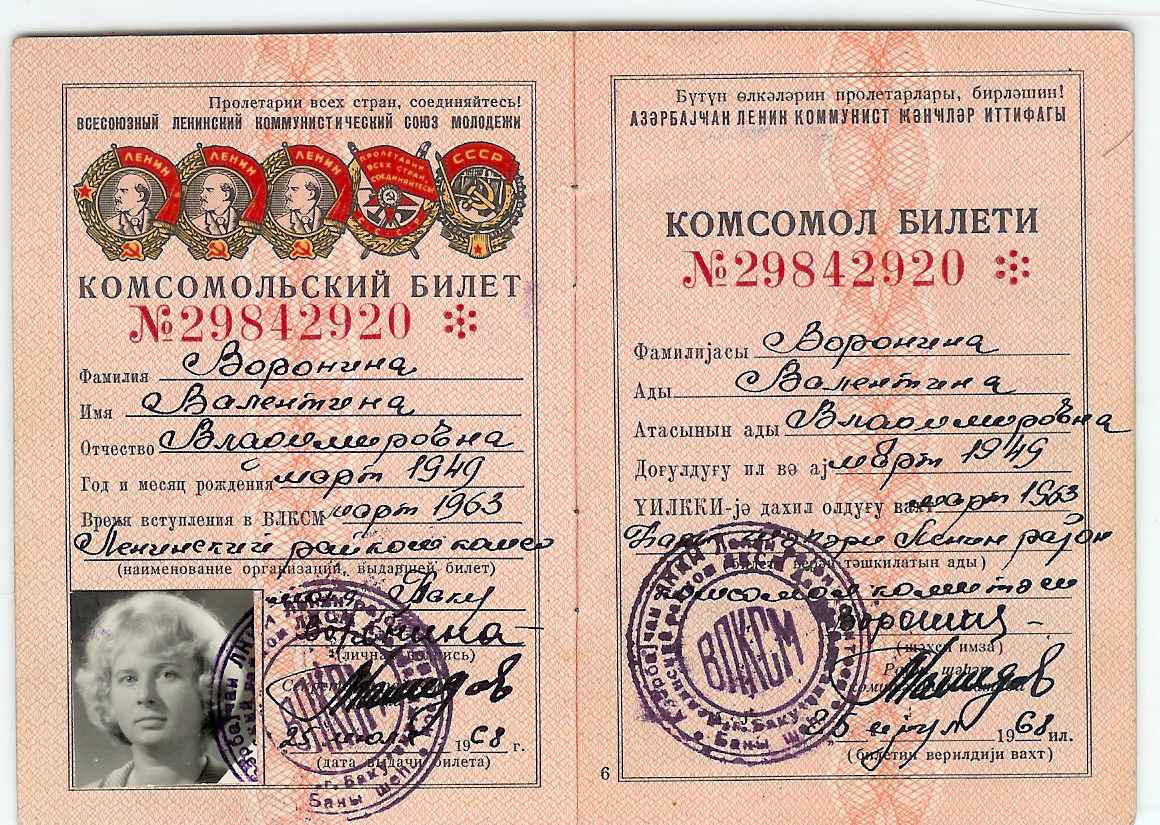 Пролетарии всех стран, соединяйтесь!
ВСЕСОЮЗНЫЙ ЛЕНИНСКИЙ КОММУНИСТИЧЕСКИЙ СОЮЗ МОЛОДЕЖИ
ЛЕНИН ЛЕНИН ЛЕНИН ПРОЛЕТАРИИ ВСЕХ СТРАН, СОЕДИНЯЙТЕСЬ! СССР
КОМСОМОЛЬСКИЙ БИЛЕТ
№29842920
Фамилия Воронина
Имя Валентина
Отчество Владимировна
Год и месяц рождения март 1949
Время вступления в ВЛКСМ март 1963
Ленинский райком комсо
(наименование организации, выдавшей билет)
мола Баку
Воронина
(личная подпись)
25 июля 1968 г.
(дата выдачи билета)
Бүтүн өлкәләрин пролетарлары, бирләшин!
АЗӘРБАЈҸАН ЛЕНИН КОММУНИСТ ҜӘНҸЛӘР ИТТИФАГЫ
КОМСОМОЛ БИЛЕТИ
№29842920
Фамилијасы Воронина
Ады Валентина
Атасынын ады Владимировна
Доғулдуғу ил вә ај март 1949
ҮИЛККИ-јә дахил олдуғу вахт март 1963
Бакы шәһәри Ленин район
(билети верән тәшкилатын ады)
комсомол комитәси
(шәхси имза)
ВЛКСМ
25 ијул 1968 ил.
(билетин верилдији вахт)
6